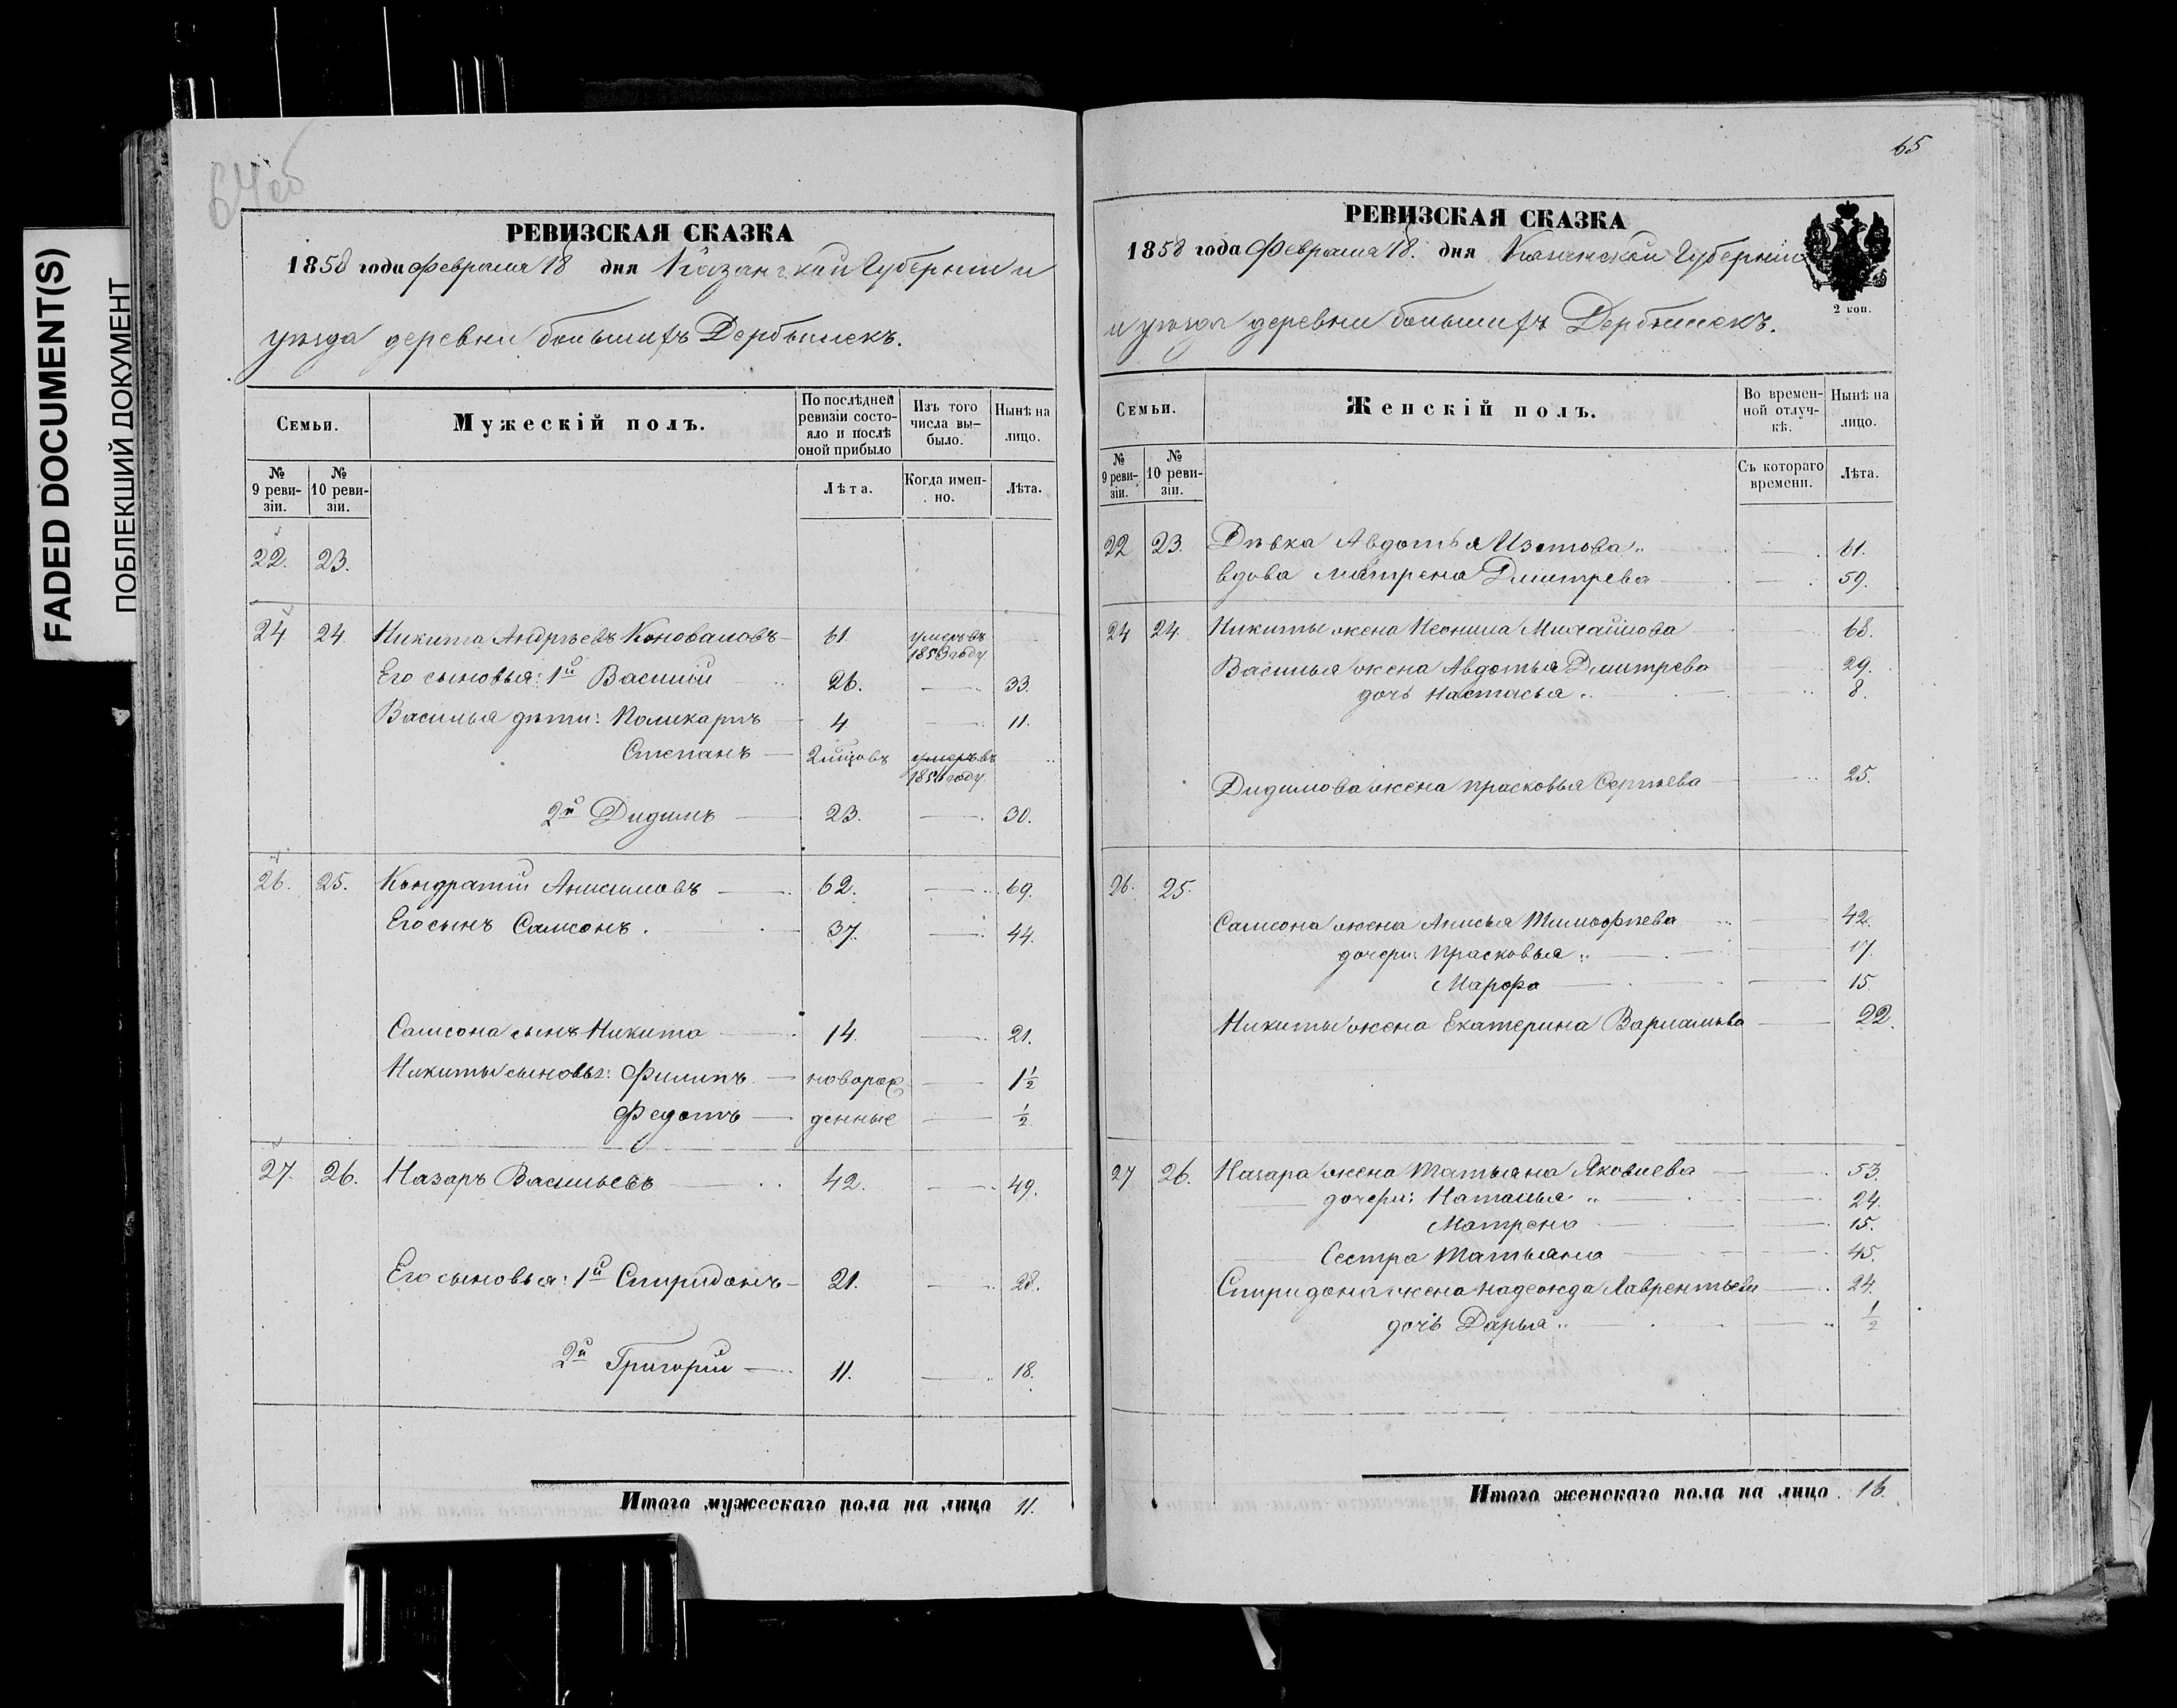 FADED DOCUMENT(S)
ПОБЛЕКШИЙ ДОКУМЕНТ
64об
РЕВИЗСКАЯ СКАЗКА
1858 года Февраля 18 дня Казанской Губернии и
уѣзда деревни большихъ Дербышекъ.
Семьи.
Мужескій полъ.
По послѣдней ревизіи состо-
яло и послѣ оной прибыло
Изъ того числа вы-
было.
Нынѣ на лицо.
№ 9 реви-
зіи.
№ 10 реви-
зіи.
Лѣта.
Когда имен-
но.
Лѣта.
22. 23.
24 24 Никита Андреевъ Коноваловъ 61 умеръ въ
1853 году
Его сыновья: 1й Василій 26. 33.
Василья дѣти: Поликарпъ 4 11.
Степанъ 2 мѣсцовъ умеръ въ
1856 году
2й Дидимъ 23. 30.
26. 25. Кондратій Анисимовъ 62. 69.
Его сынъ Самсонъ. 37. 44.
Самсона сынъ Никита 14. 21.
Никиты сыновья: Филипъ новорож 1½
Федотъ денные ½
27. 26. Назаръ Васильевъ 42. 49.
Его сыновья: 1й Спиридонъ 21. 28.
2й Григорій 11. 18.
Итого мужескаго пола на лицо 11.
65
РЕВИЗСКАЯ СКАЗКА
1858 года Февраля 18. дня Казанской Губерніи
и уѣзда деревни большихъ Дербышекъ.
2 коп.
Семьи.
Женскій полъ.
Во времен-
ной отлуч-
кѣ.
Нынѣ на лицо.
№ 9 реви-
зіи.
№ 10 реви-
зіи.
Съ котораго времени.
Лѣта.
22 23. Дѣвка Авдотья Изотова 61.
вдова Матрена Дмитрева 59.
24 24. Никиты жена Неонила Михайлова 68.
Василья жена Авдотья Дмитрева 29.
дочь Настасья 8.
Дидимова жена Прасковья Сергѣева 25.
26. 25.
Самсона жена Анисья Тимофѣева 42.
дочери: Прасковья 17.
Марфа 15
Никиты жена Екатерина Варламьва 22.
27 26. Назара жена Татьяна Яковлева 53.
дочери: Наталья 24.
Матрена 15.
Сестра Татьяна 45.
Спиридона жена Надежда Лаврентьева 24.
дочь Дарья ½
Итого женскаго пола на лицо 16.